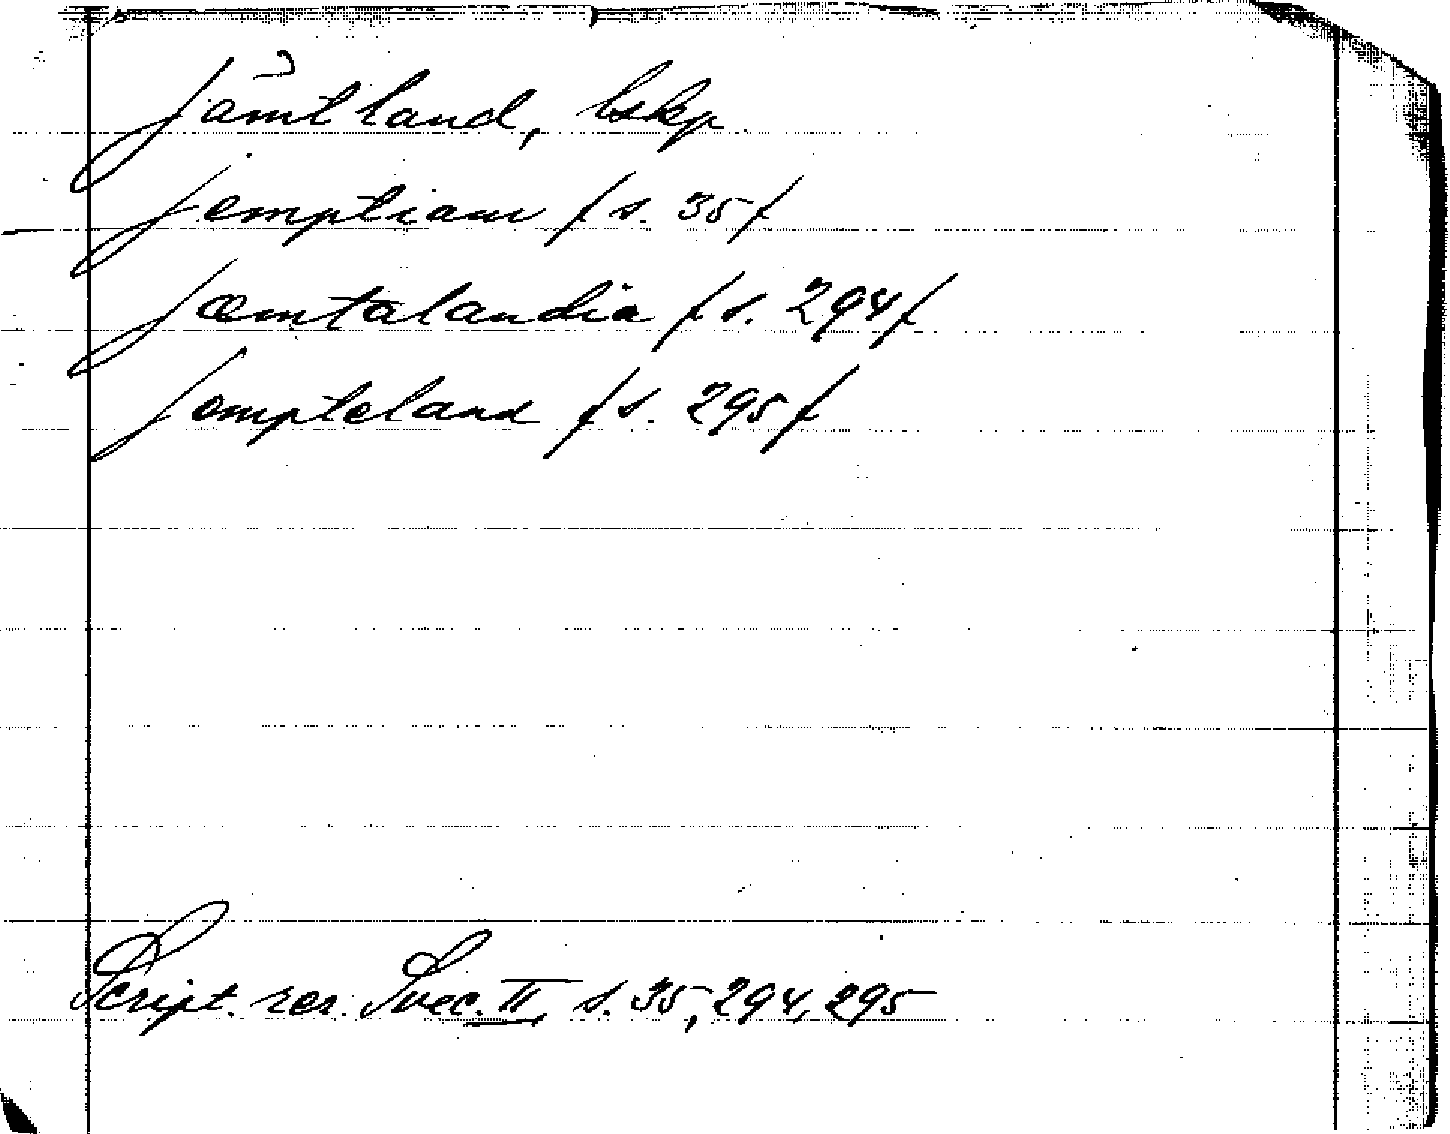 Jämtland, lskp.
Jemptiam /s. 35/
Jæmtalandia /s. 294/
Jempteland /s. 295/
Script. rer. Svec. II, s. 35, 294, 295